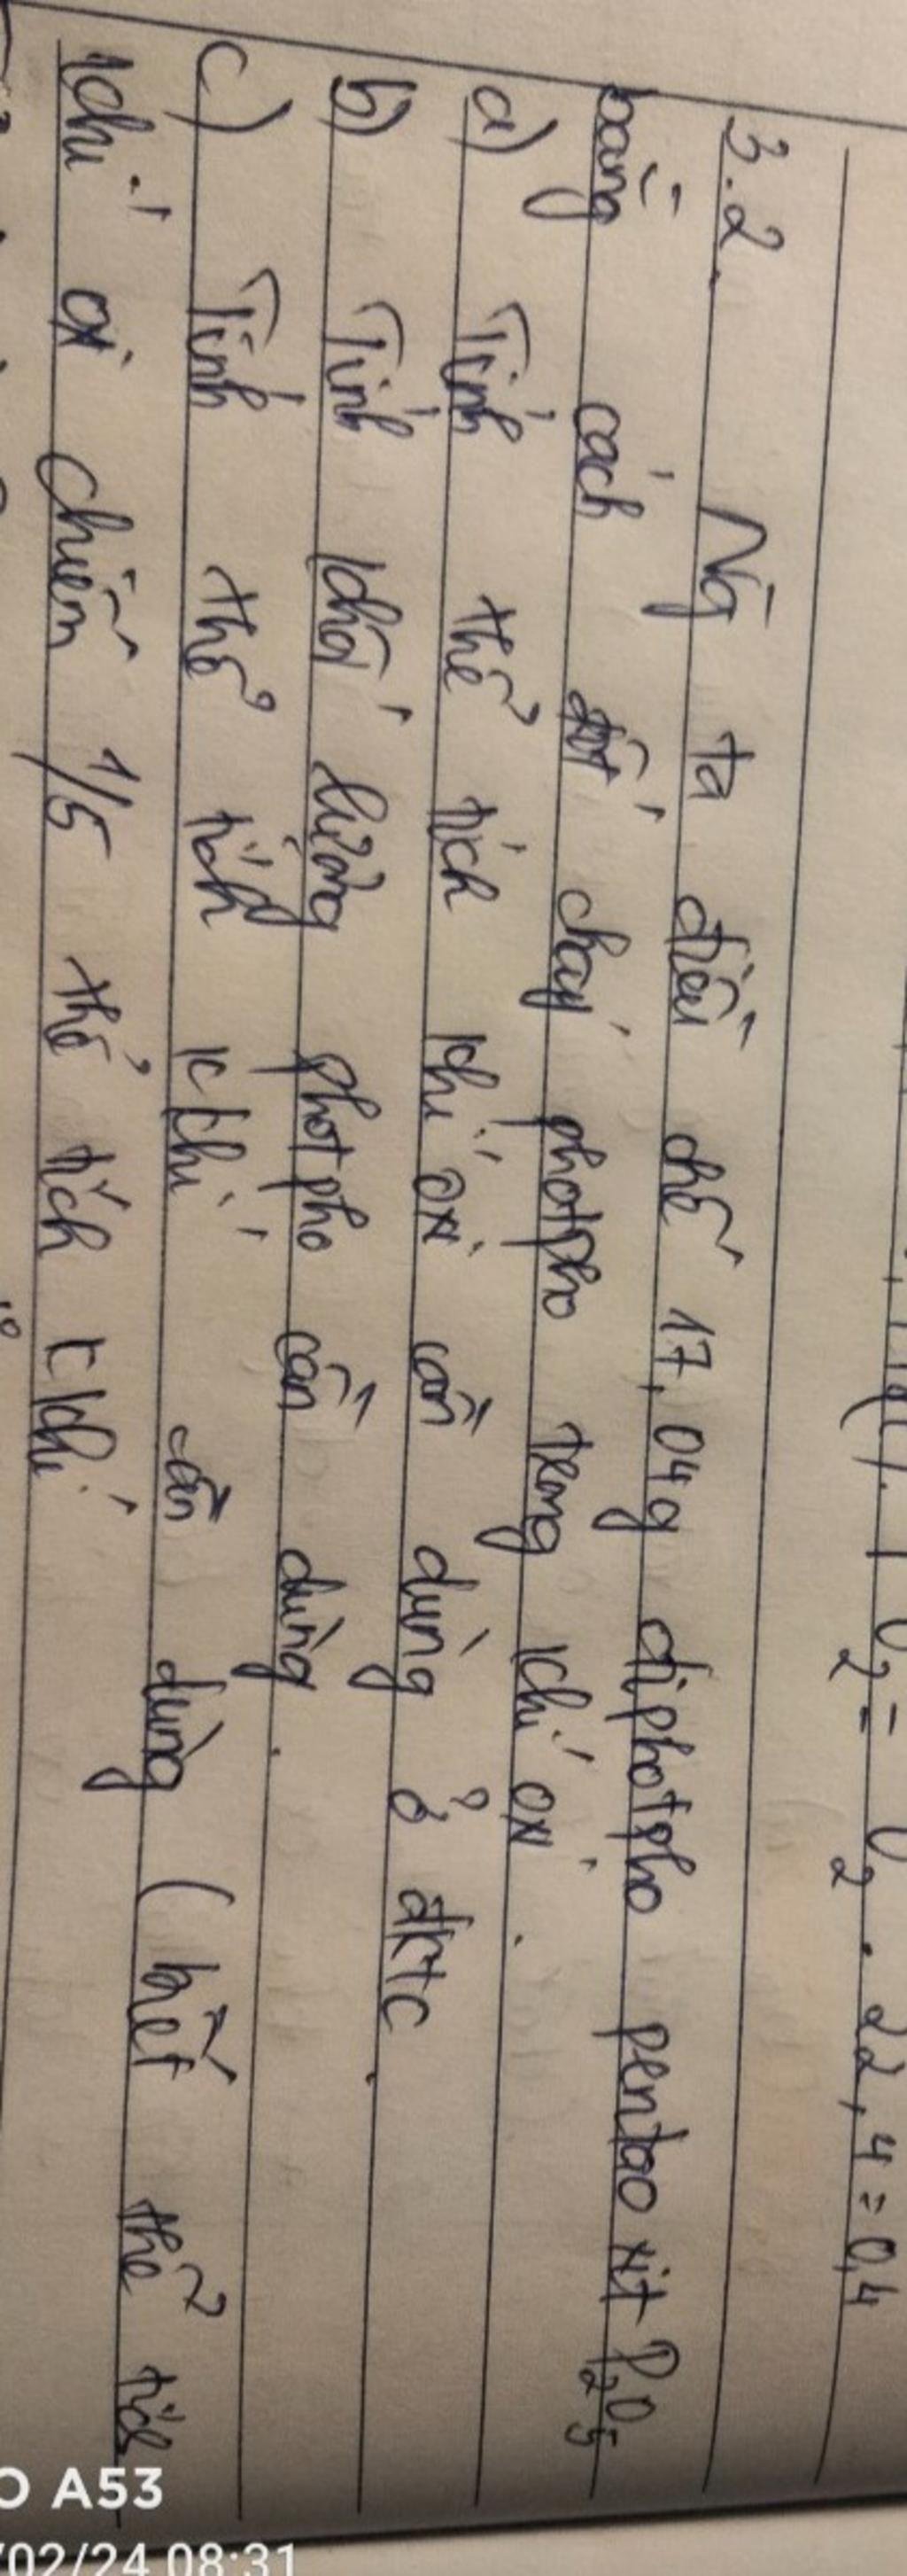 2 = 0,2 . 22,4 = 0,4
3.2. Ng ta điều chế 17,04g điphotpho pentaoxit P2O5
bằng cách đốt cháy photpho trong khí oxi.
a) Tính thể tích khí oxi cần dùng ở đktc.
b) Tính khối lượng photpho cần dùng.
c) Tính thể tích k khí cần dùng (biết thể tích
khí oxi chiếm 1/5 thể tích k khí
O A53
/02/24 08:31